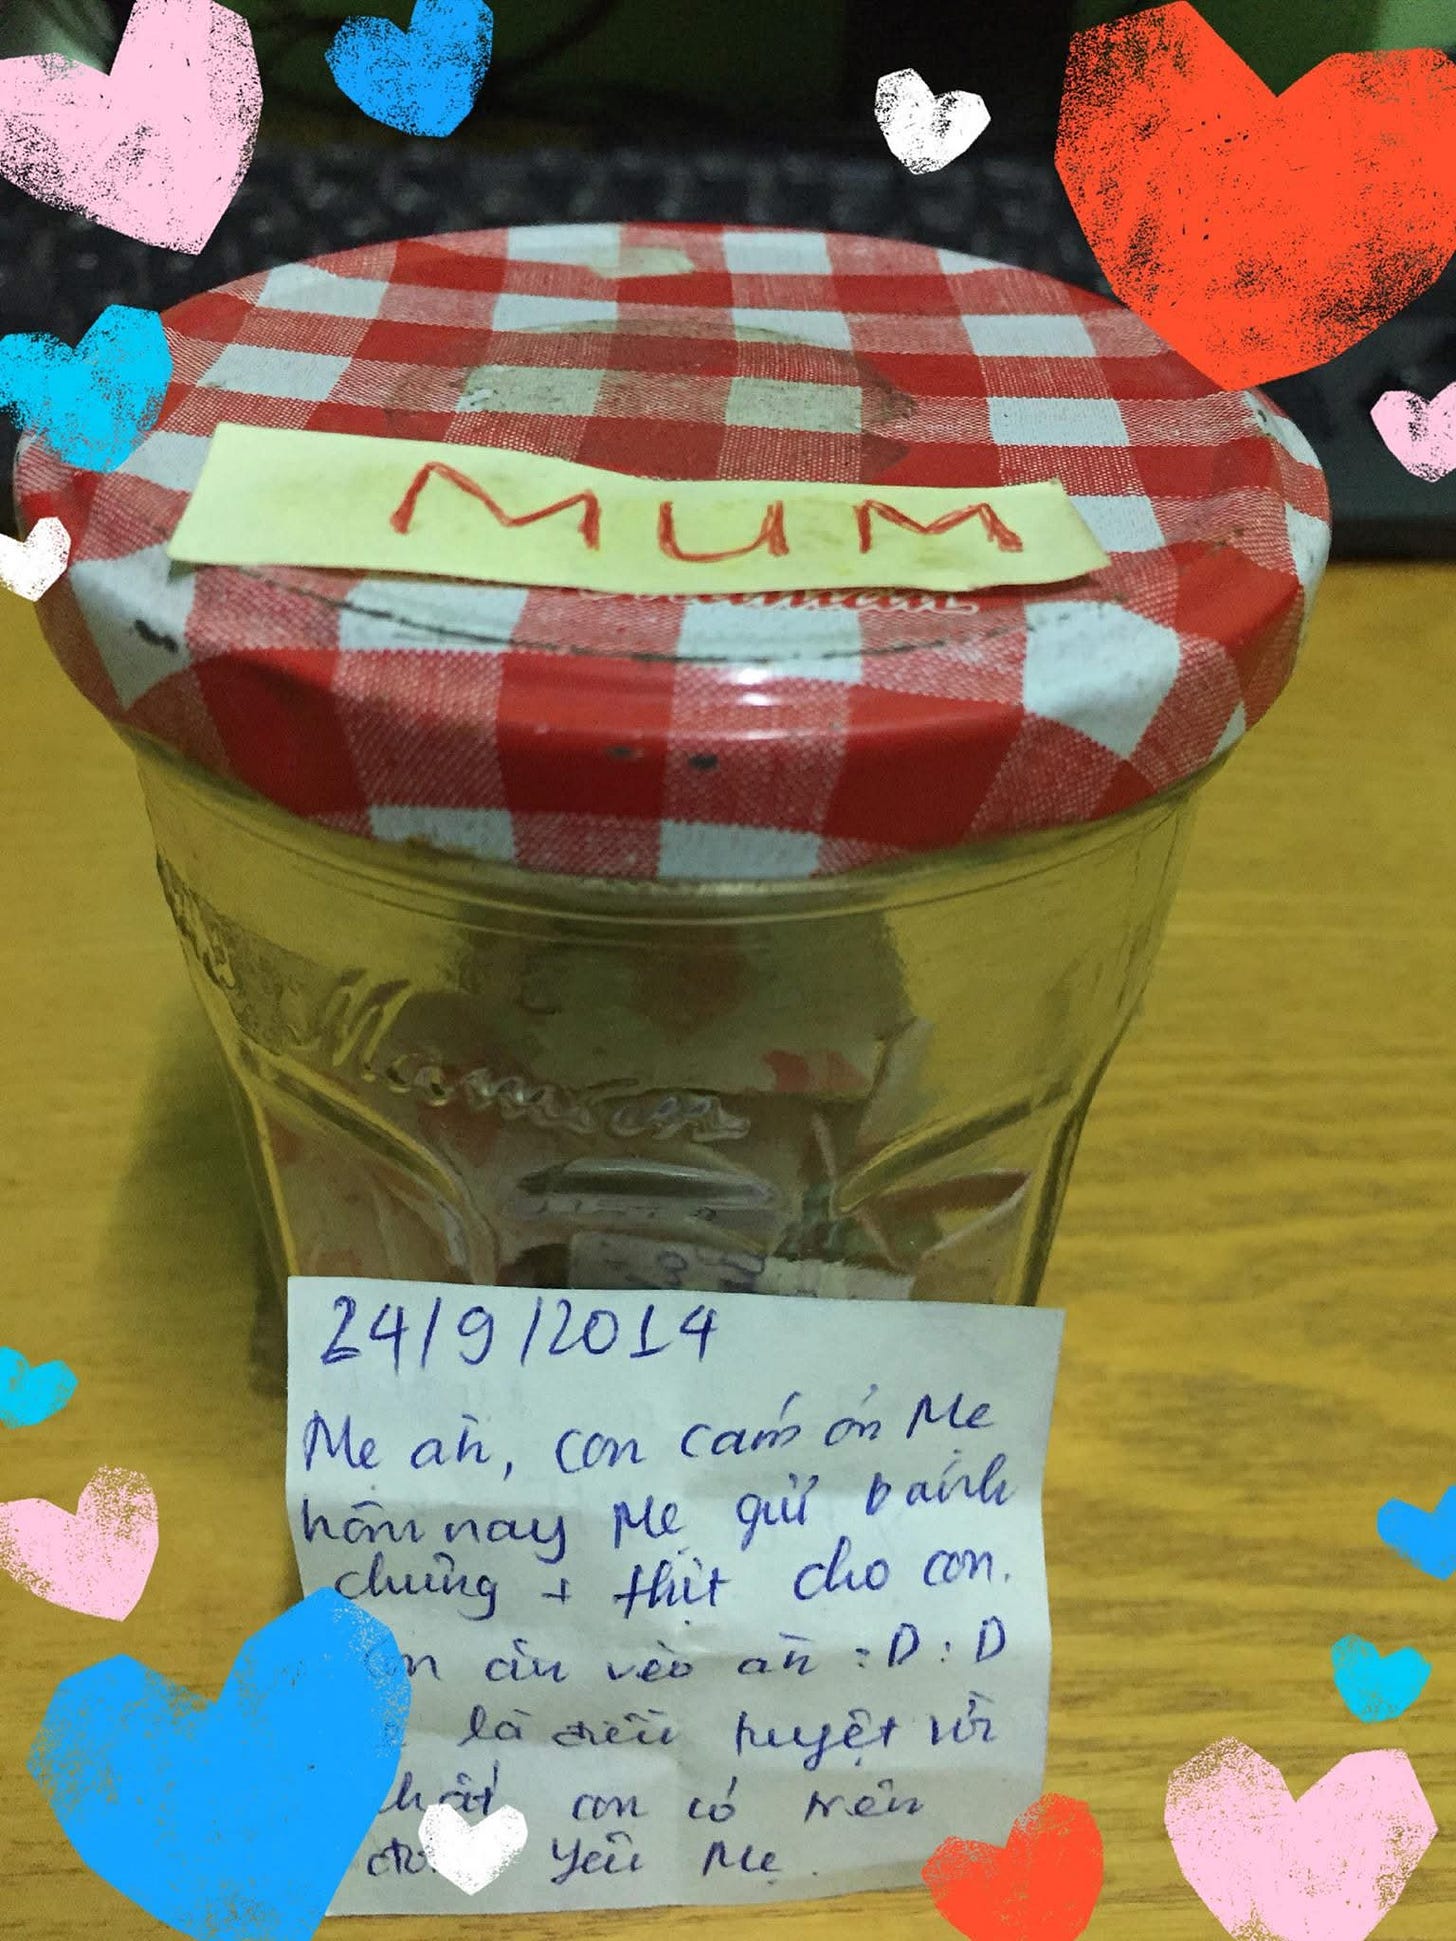 MUM
Maman
24/9/2014
Mẹ ah, con cám ơn Mẹ
hôm nay Mẹ gửi bánh
chưng + thịt cho con.
ăn vèo ah :D :D
là điều tuyệt vời
con có trên
Yêu Mẹ.